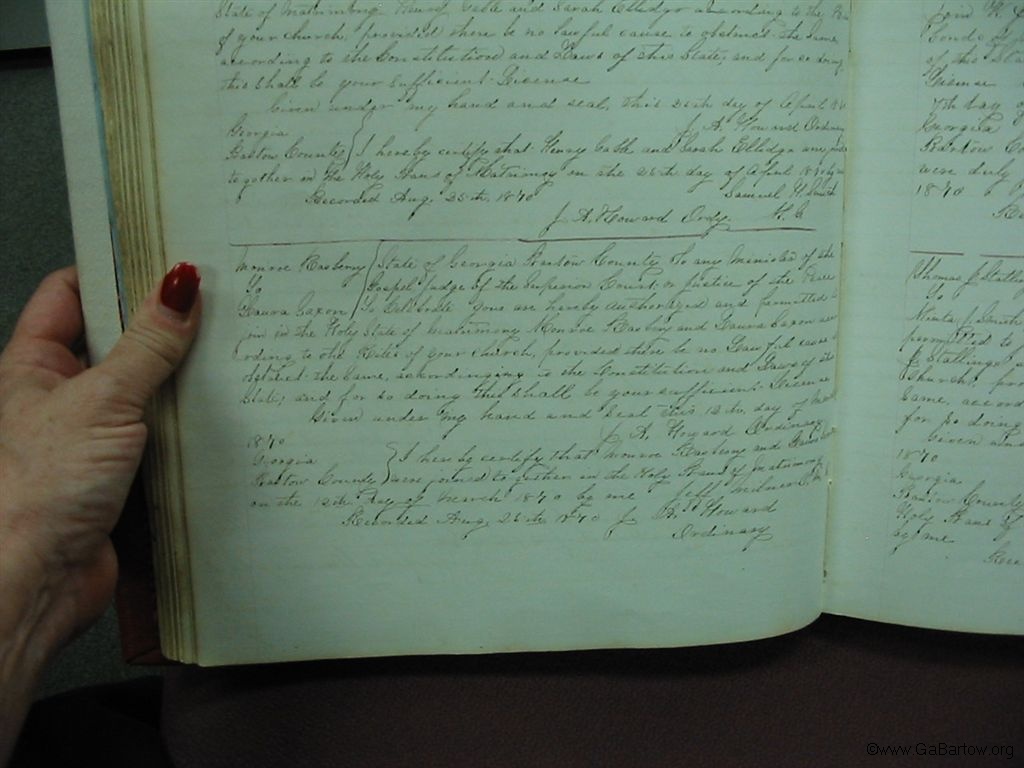 State of Matrimony Henry Cabb and Sarah Elledge according to the
of your church, provided there be no lawful cause to obstruct the same
according to the Constitution and Laws of this State, and for so doing
this shall be your sufficient License
Given under my hand and seal, this 25th day of April
J. A. Howard Ordinary
Georgia
Bartow County I hereby certify that Henry Cabb and Sarah Elledge were
together in the Holy Bans of Matrimony on the 25th day of April 1870 by
Samuel H. Smith
Recorded Aug. 25th, 1870
J. A. Howard Ordy. N. G.
Monroe Rasberry State of Georgia Bartow County To any Minister of the
To Gospel, Judge of the Superior Court or Justice of the Peace
Laura Saxon To Celebrate you are hereby authorized and permitted to
join in the Holy State of Matrimony Monroe Rasbery and Laura Saxon acc
ording to the Rites of your church, provided there be no Lawful cause to
obstruct the same, according to the Constitution and Laws of this
State, and for so doing this shall be your sufficient License
Given under my hand and Seal this 12th day of March
1870
J. A. Howard Ordinary
Georgia I hereby certify that Monroe Rasbery and Laura
Bartow County were joined together in the Holy Bans of matrimony
on the 12th Day of March 1870 by me Jeff Milner
Recorded Aug. 25th 1870 J. A. Howard
Ordinary
join
of this Sta
License
7th day of
Georgia
Bartow Co
were duly
1870
Re
Thomas J. Stalling
To
permitted to
J. Stallings
church, pro
same, accord
for so doing
Given und
1870
Georgia
Bartow County
Holy Bans of
by me
Reco
©www.GaBartow.org